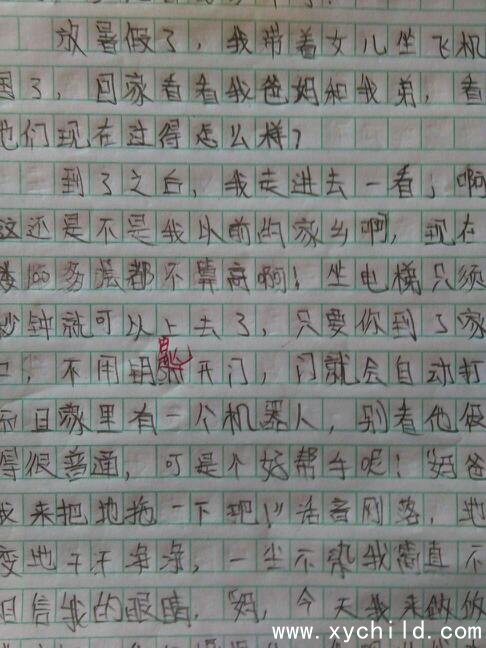 放暑假了，我带着女儿坐飞机
国了，回家看看我爸妈和我弟，看
他们现在过得怎么样？
到了之后，我走进去一看，啊
这还是不是我以前的家乡啊，现在
楼100多层都不算高啊！坐电梯只须
秒钟就可以上去了，只要你到了家
口，不用钥匙开门，门就会自动打
而且家里有一个机器人，别看他很
得很普通，可是个好帮手呢！"妈爸
我来把地拖一下吧！"话音刚落，地
变地干干净净，一尘不染我简直不
相信我的眼睛，"妈，今天我来做饭
www.xychild.com